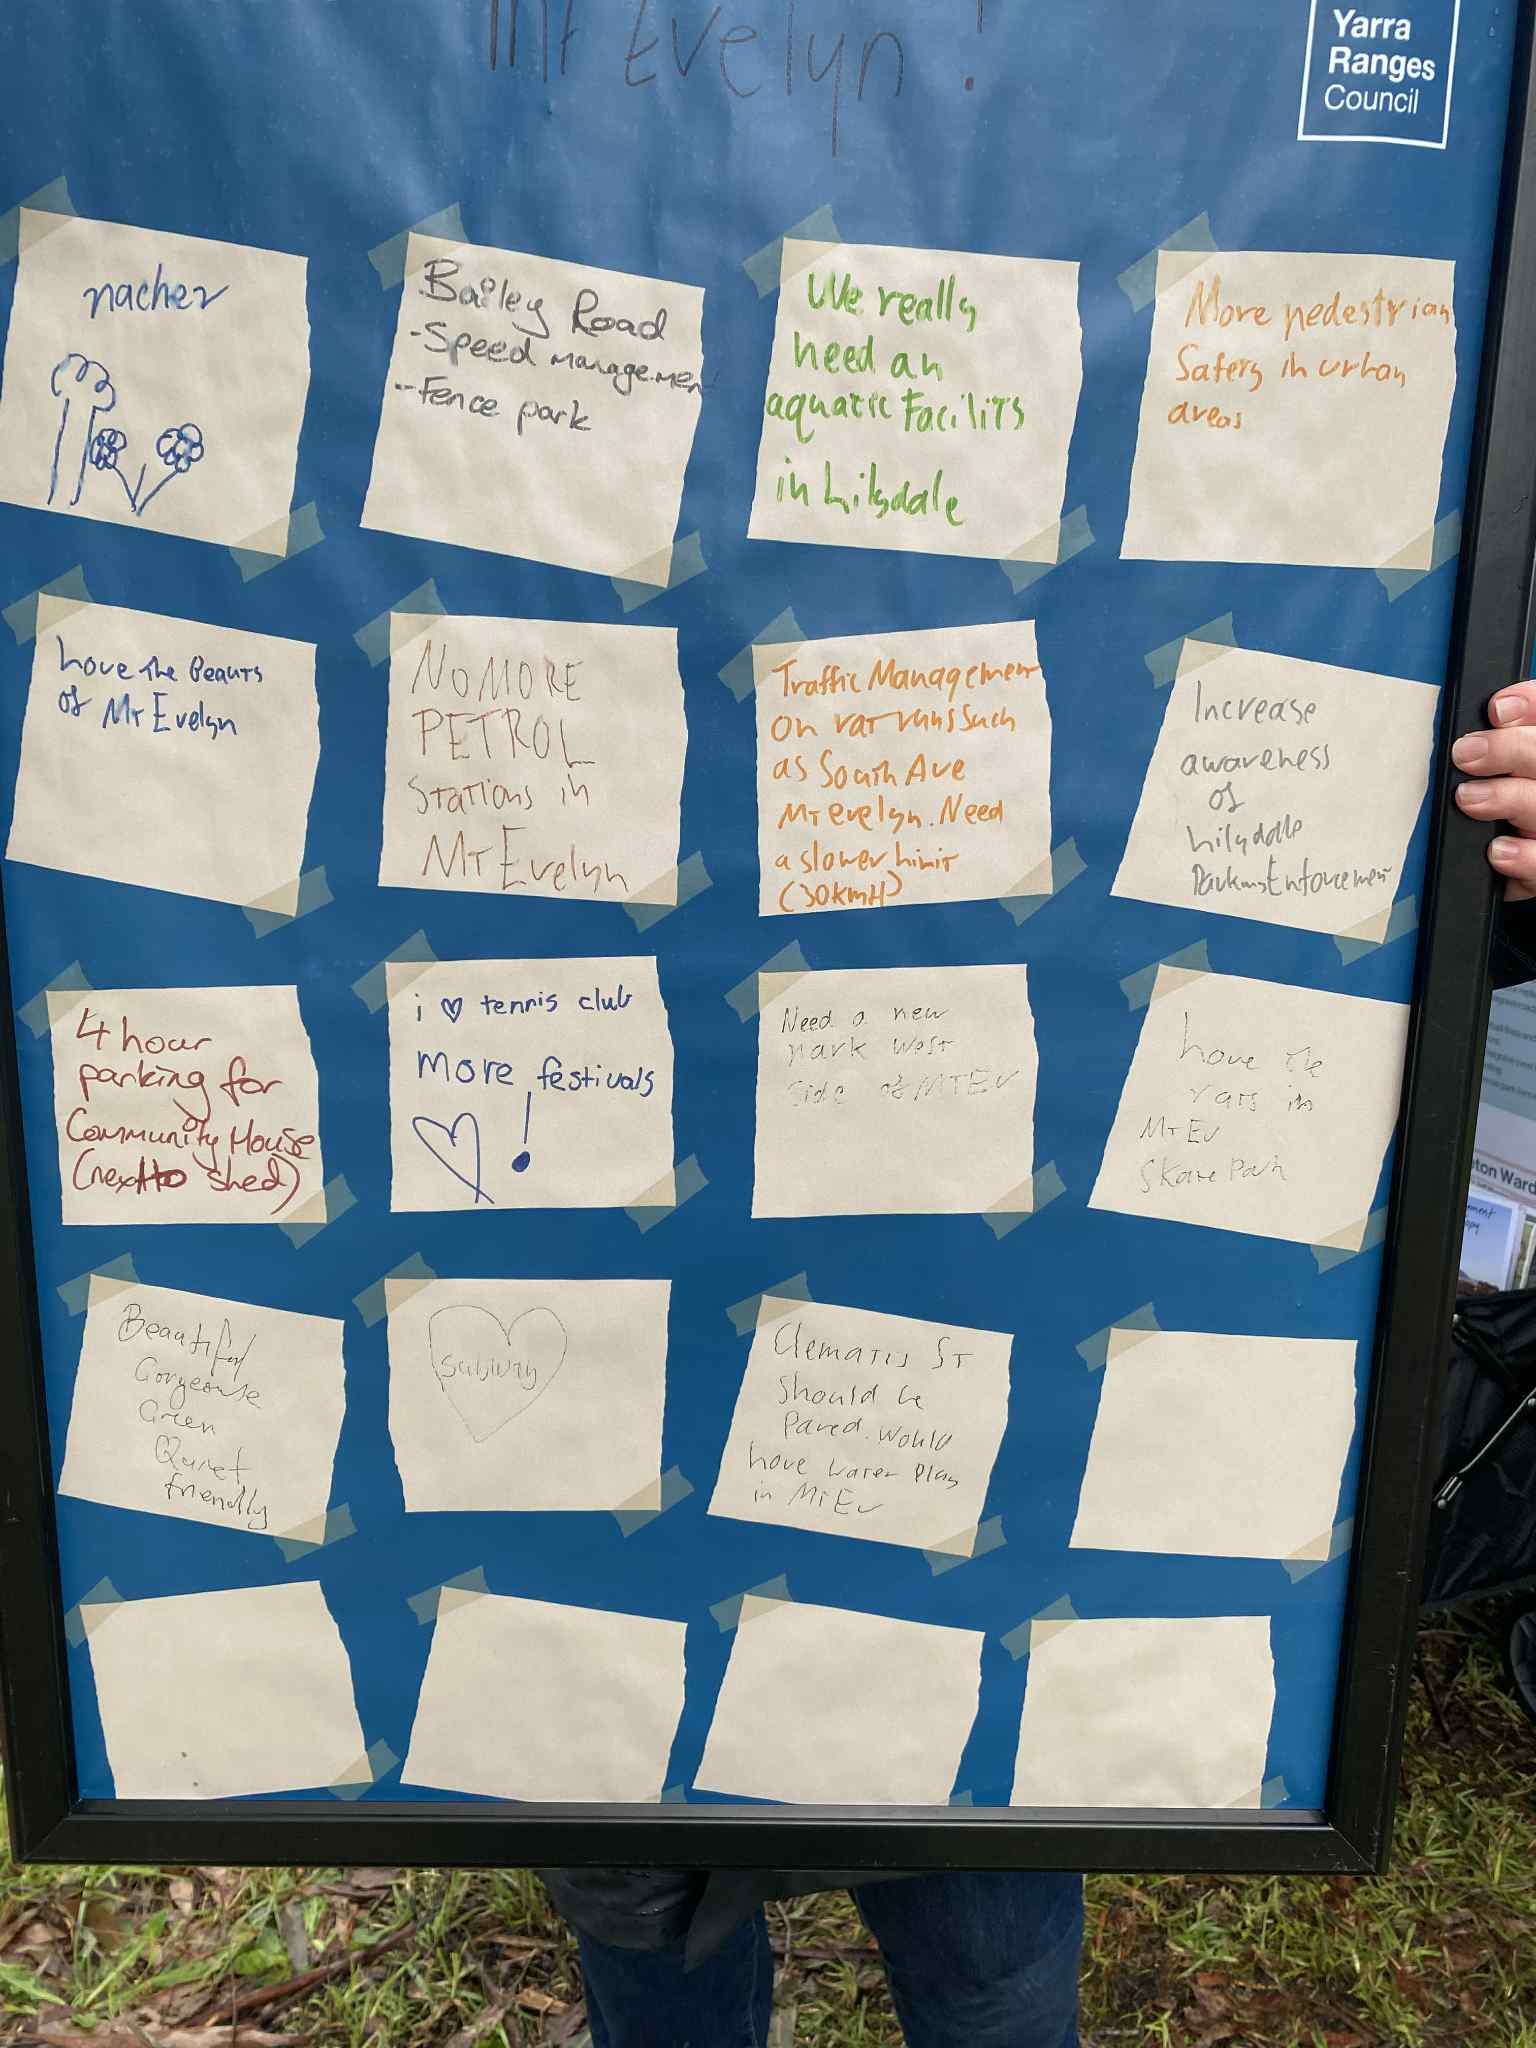 Mt Evelyn!
Yarra
Ranges
Council
nacher
Bailey Road
-Speed management
-Fence park
We really
need an
aquatic Facility
in Lilydale
More pedestrian
Safety in urban
areas
Love the Beauty
of Mt Evelyn
NO MORE
PETROL
Stations in
Mt Evelyn
Traffic Management
on rat runs such
as South Ave
Mt Evelyn. Need
a slower Limit
(30kmH)
Increase
awareness
of
Lilydale
Parking Enforcement
4 hour
parking for
Community House
(next to shed)
i ♡ tennis club
more festivals
!
Need a new
park west
side of MT EV
Love the
rats in
Mt Ev
Skate Park
Beautiful
Gorgeouse
Green
Quiet
friendly
Subway
Clematis St
should be
Paved. Would
love water play
in Mt Ev
ton Ward